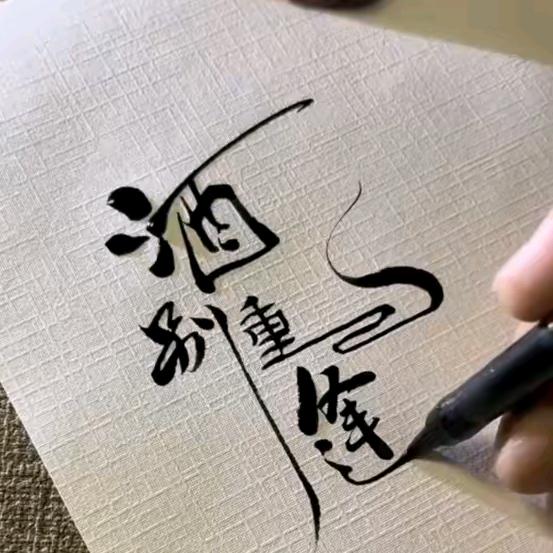 酒
别重
逢